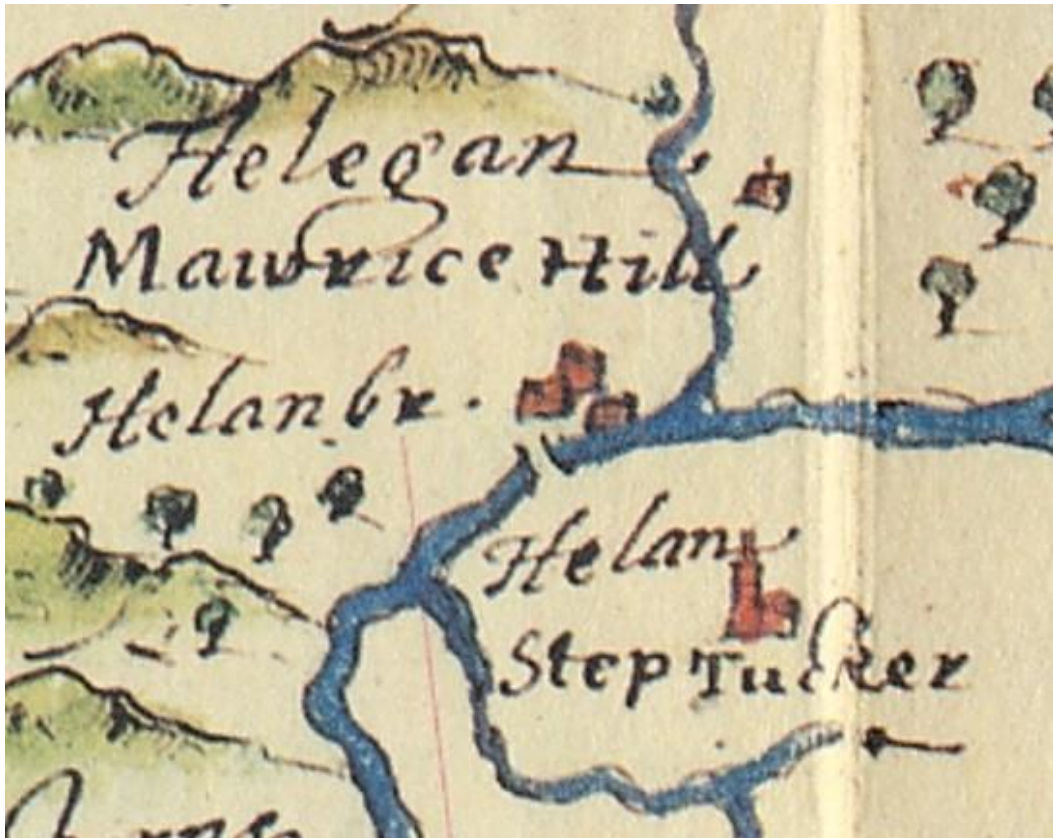 Helegan
Maurice Hill
Helan br.
Helan
Step Tucker